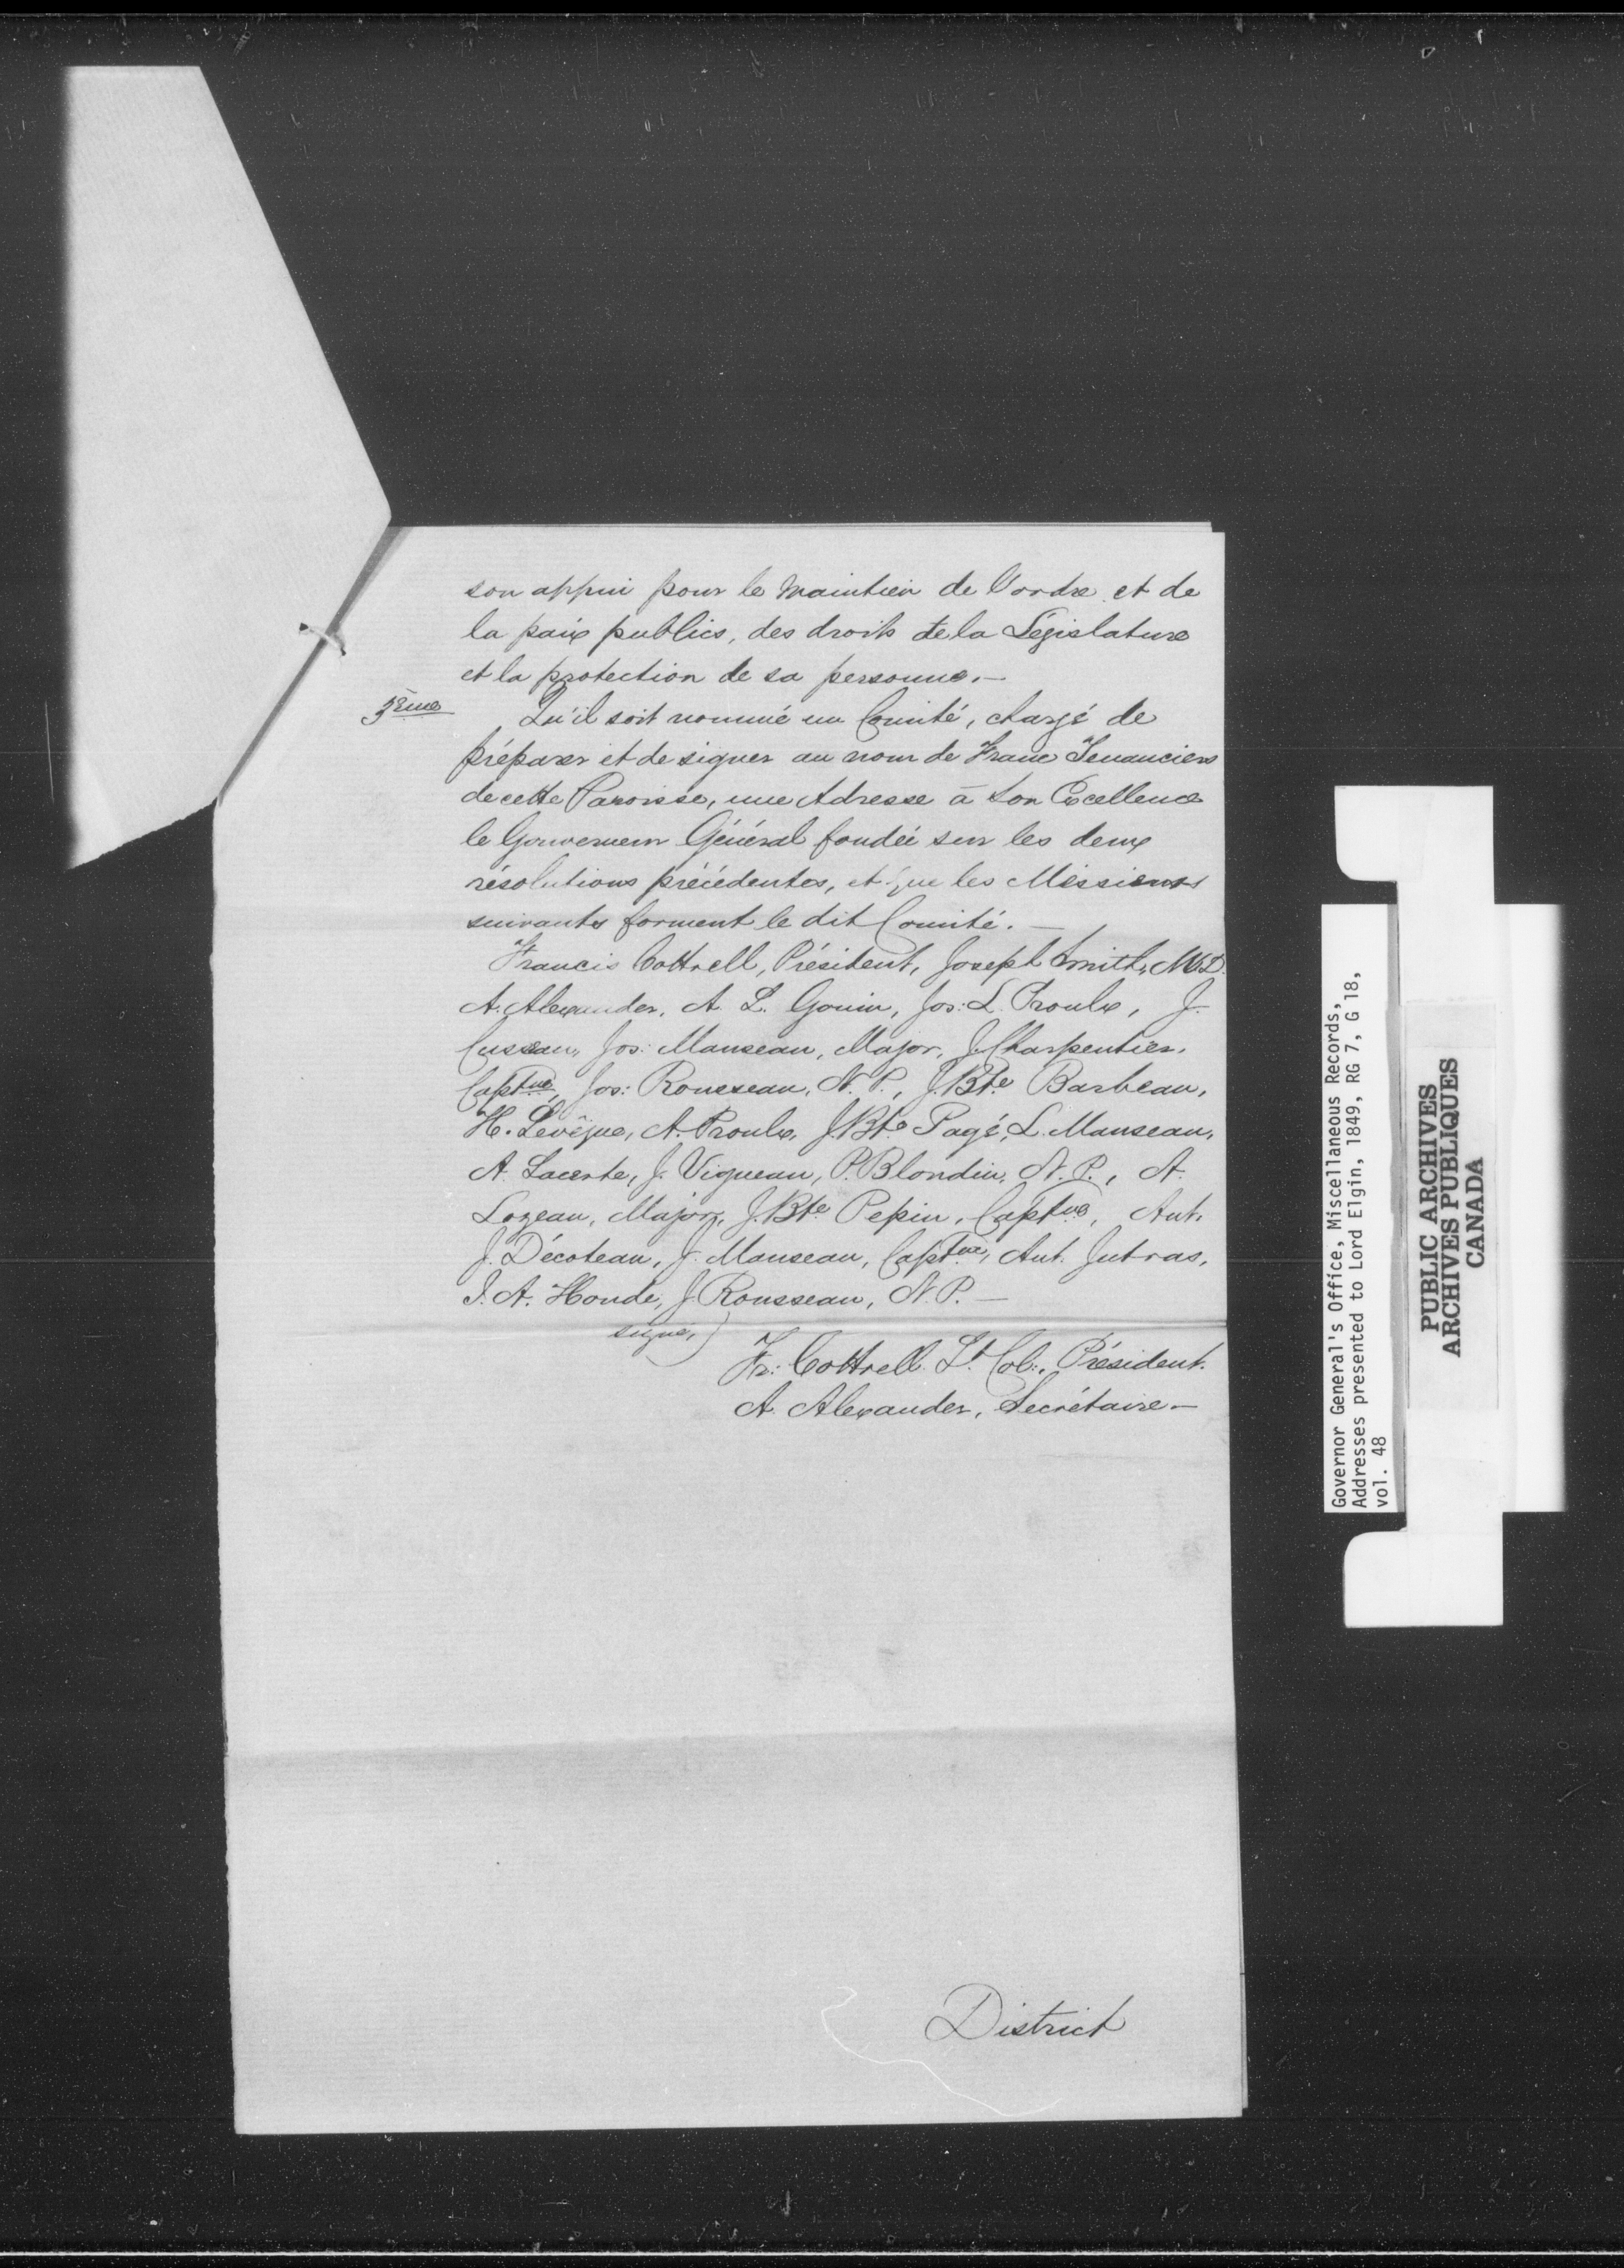 son appui pour le maintien de l'ordre et de
la paix publics, des droits de la Législature
et la protection de sa personne.—
3ème Qu'il soit nommé un Comité, chargé de
préparer et de signer au nom de Franc Tenanciers
de cette Paroisse, une Adresse à Son Excellence
le Gouverneur Général fondée sur les deux
résolutions précédentes, et que les Messieurs
suivants forment le dit Comité.—
Francis Cottrell, Président, Joseph Smith, M.D.
A. Alexander, A. L. Gouin, Jos: L. Proulx, J.
Cusseau, Jos: Manseau, Major, J. Charpentier,
Captne, Jos: Rousseau, N. P., J. Bte Barbeau,
H. Levêque, A. Proulx, J. Bte Pagé, L. Manseau,
A. Lacerte, J. Vigneau, P. Blondin, N. P., A.
Lozeau, Major, J. Bte Pepin, Captne, Ant.
J. Décoteau, J. Manseau, Captne, Ant. Jutras,
J. A. Houde, J. Rousseau, N. P.—
signé,)
Fr: Cottrell Lt. Col:, Président.
A. Alexander, Secrétaire.—
District
Governor General's Office, Miscellaneous Records,
Addresses presented to Lord Elgin, 1849, RG 7, G 18,
vol. 48
PUBLIC ARCHIVES
ARCHIVES PUBLIQUES
CANADA